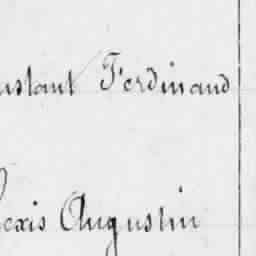 ustant Ferdinand
lexis Augustin